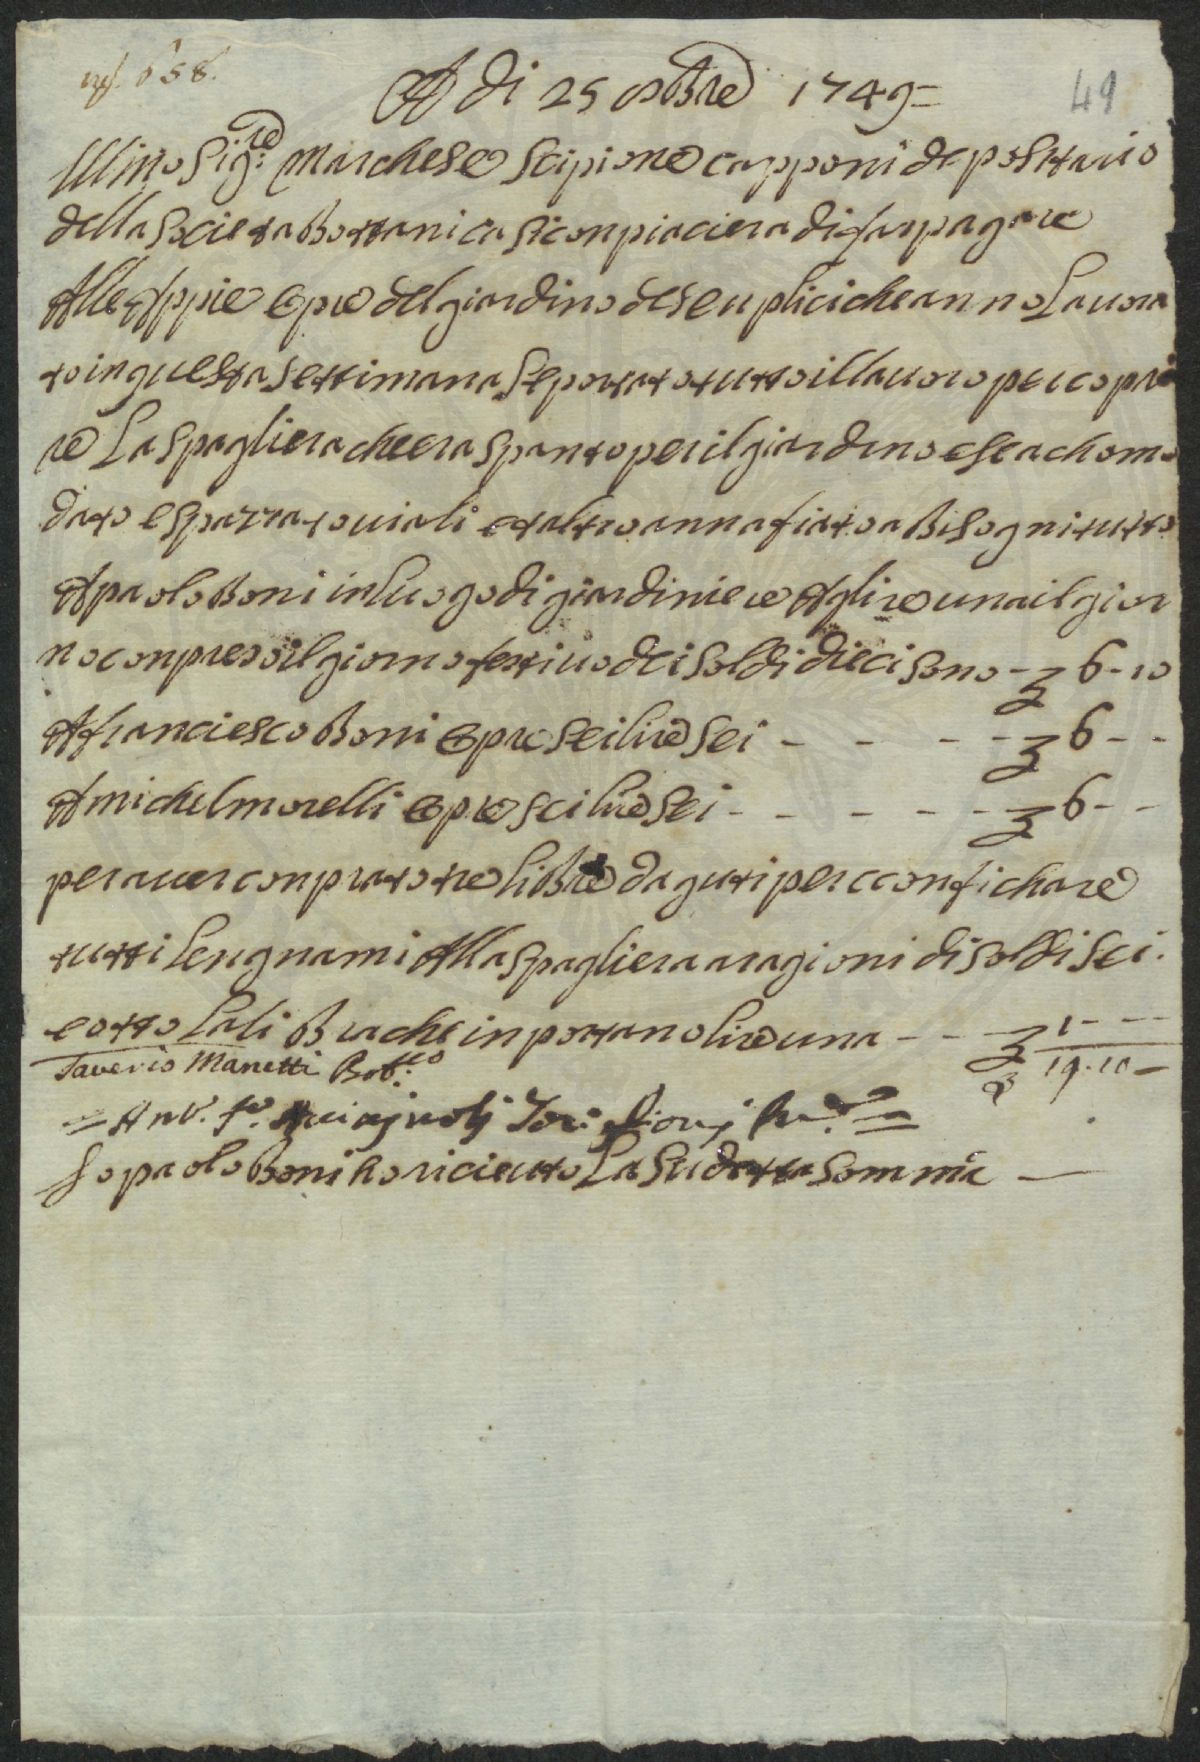 A di 25 ottobre 1749=
49
Illmo Sig:re Marchese Scipione capponi depositario
della Societa Bottanica si conpiacierà di far pagare
Alle Appie Opre del giardino de senplici che anno Lavora
to in questa settimana Se portato tutto il lavoro per copri
re La spagliera che era spanto per il giardino e se achomo
dato e spazzato viali et altro annafiato a Bisogni tutto
A paolo Boni in luogo di giardiniere A lire una il gior
no conpreso il giorno festivo dei soldi dieci sono - £ 6-10
A franciesco Boni Opre sei lire sei - - - - - £ 6 - -
A michel morelli Opre sei lire sei - - - - - - £ 6 - -
per aver conprato tre libre d aguti per cconfichare
tutti Lengnami Alla Spagliera a ragioni di soldi sei
e otto La li Bra che in portano lire una - - £ 1 - - -
Saverio Manetti Bot:co £ 19.10 -
Io paolo Boni ho riceuto La Sudetta Somma —